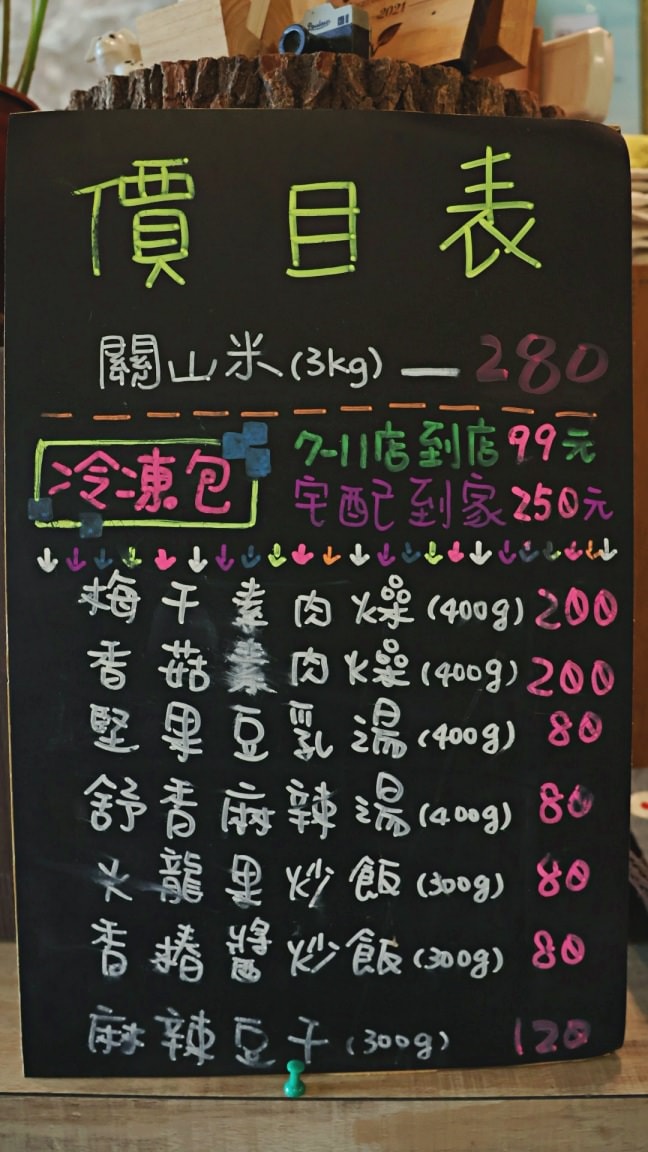 2021
價目表
關山米(3kg) — 280
冷凍包
7-11店到店99元
宅配到家250元
梅干素肉燥(400g) 200
香菇素肉燥(400g) 200
堅果豆乳湯(400g) 80
舒香麻辣湯(400g) 80
火龍果炒飯(300g) 80
香椿醬炒飯(300g) 80
麻辣豆干(300g) 120